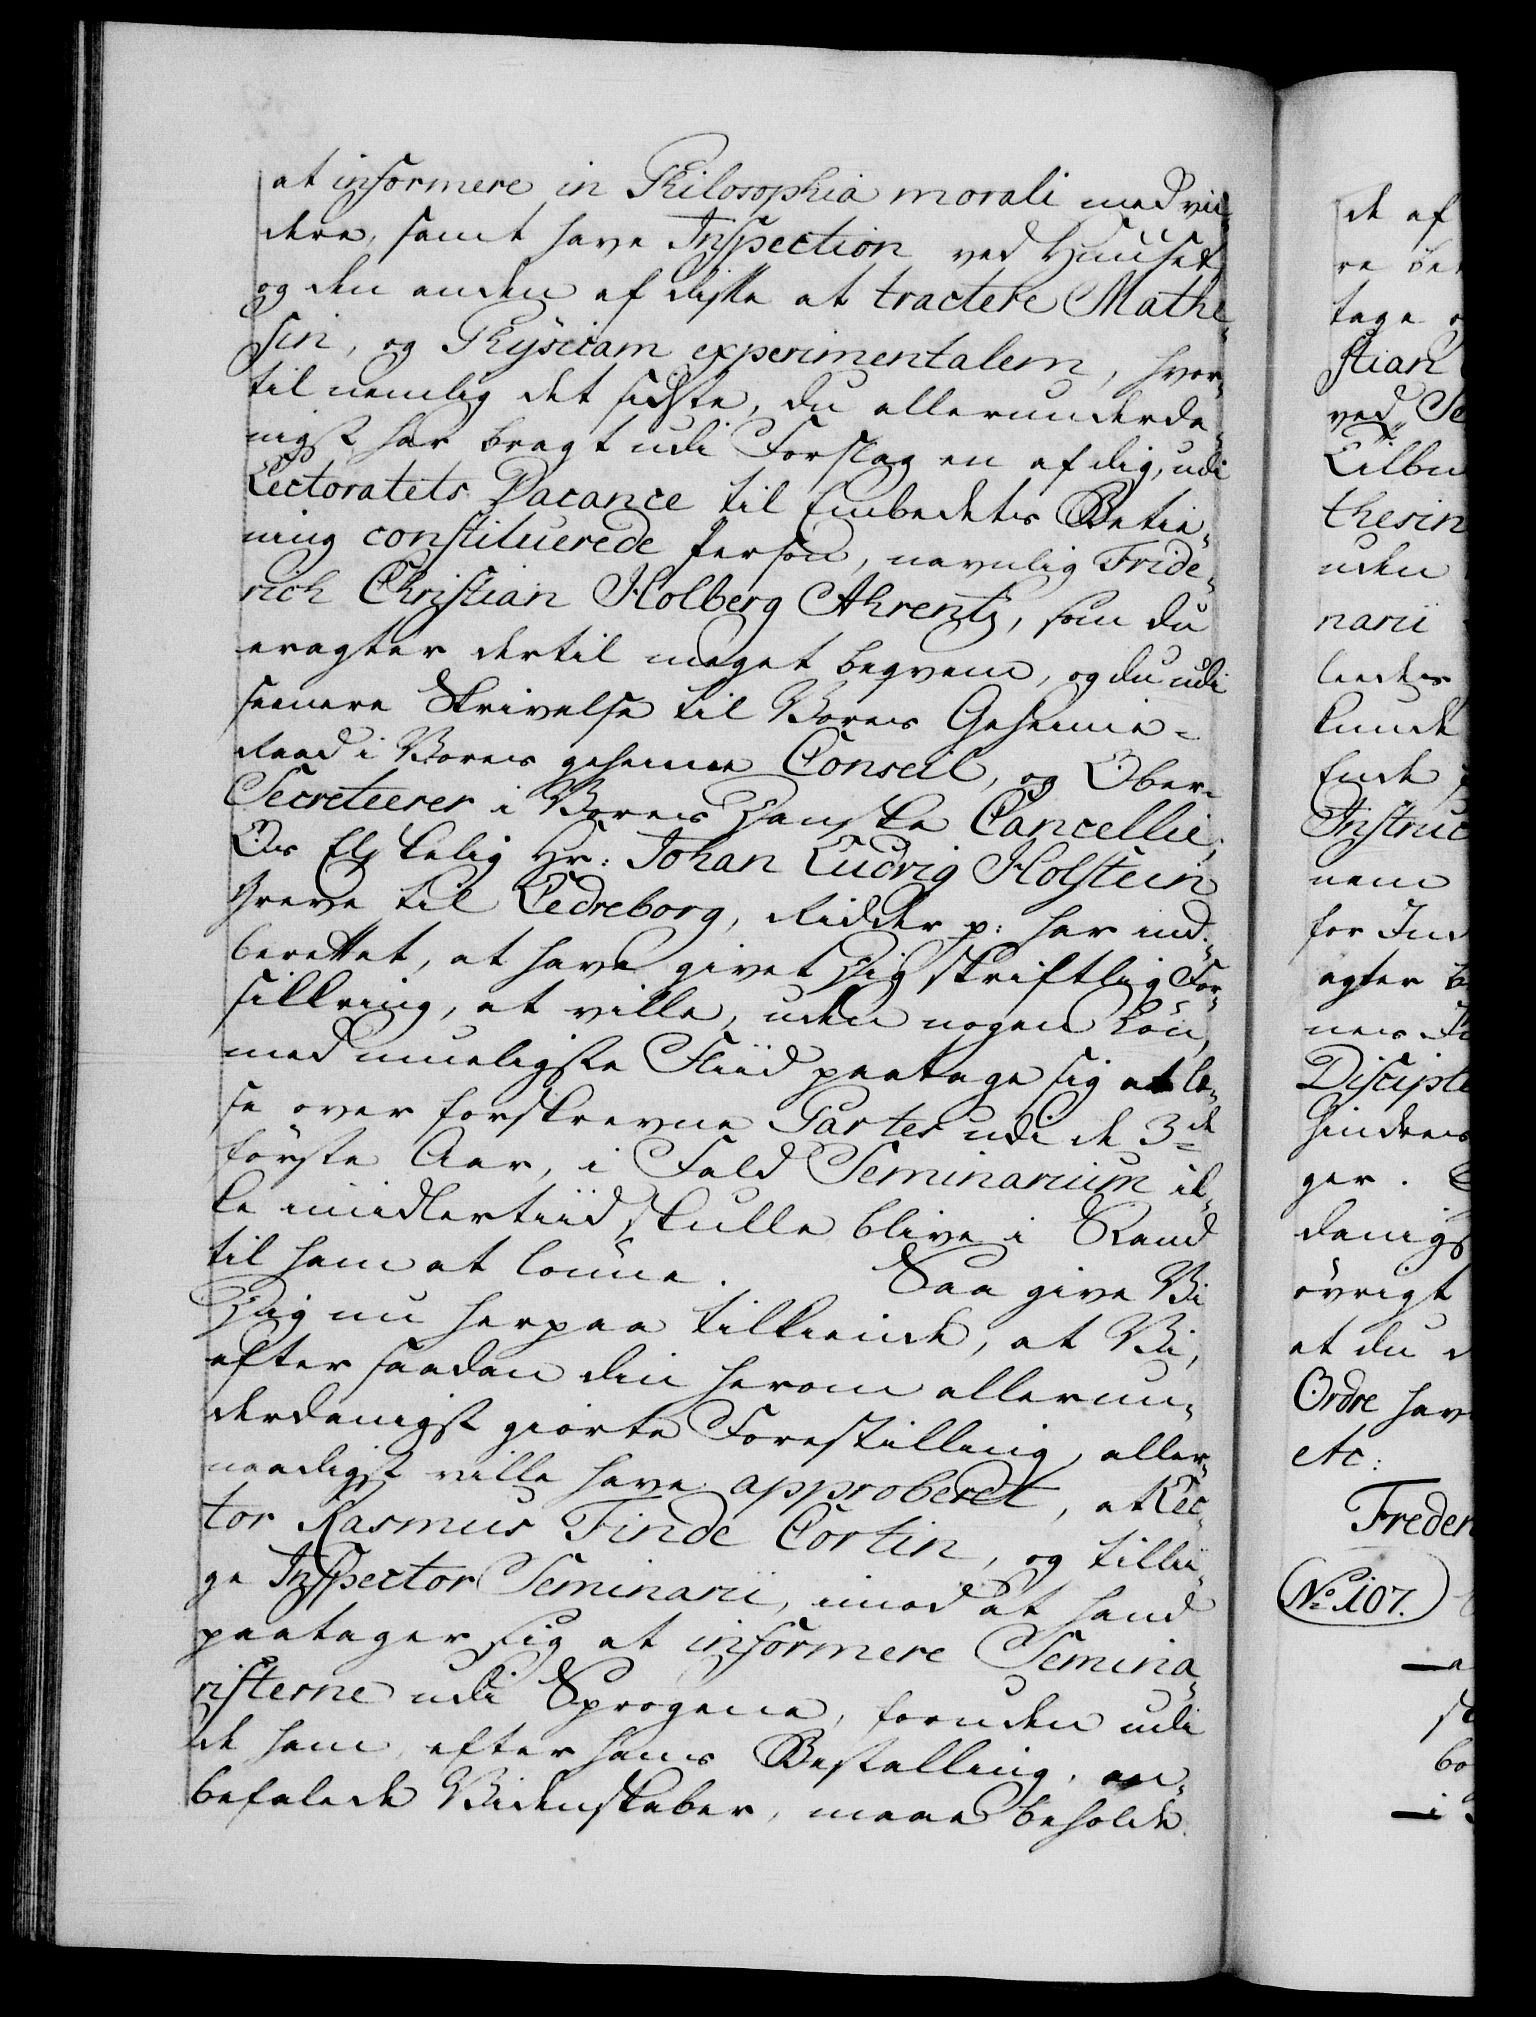 at informere in Philosophia morali med vii-
dere, samt have Inspection ved Huuset,
og den anden af disse at tractere Mathe-
sin, og Physicam experimentalem, hvor-
til nemlig det sidste, du allerunderda-
nigst har bragt udi Forslag en af dig, udi
Lectoratets Vacance til Embedets Betie-
ning constituerede Person, navnlig Fride-
rich Christian Holberg Ahrentz, som du
eragter dertil meget beqvem, og du udi
seenere Skrivelse til Vores Geheime-
Raad i Vores geheime Conseil, og Ober-
Secreteerer i Vores Danske Cancellie,
Os Elskelig Hr: Johan Ludvig Holstein
Greve til Ledreborg, Ridder p: har ind-
berettet, at have givet Dig skriftlig For-
sikkring, at ville, uden nogen Løn,
med mueligste Fliid paatage sig at læ-
se over forskrevne Partes udi de 3de
første Aar, i Fald Seminarium ik-
ke imidlertiid skulle blive i Stand
til ham at lønne. Saa give Vi
Dig nu herpaa tilkiende, at Vi,
efter saadan din herom allerun-
derdanigst giorte Forestilling, aller-
naadigst ville have approberet, at Lec-
tor Rasmus Finde Cortin, og tillii-
ge Inspector Seminarii, imod at hand
paatager sig at informere Semina-
risterne udi Sprogene, foruden udi
de ham, efter hans Bestalling, an-
befalede Videnskaber, maae beholde
de af
tage
stian
ved Se
thesin
uden
narii
kunde
Ende
Instruc
nem
for Ind
agter
Discipl
ger.
danigs
øvrigt
at du
Ordre hav
etc:
Freder
No. 107.